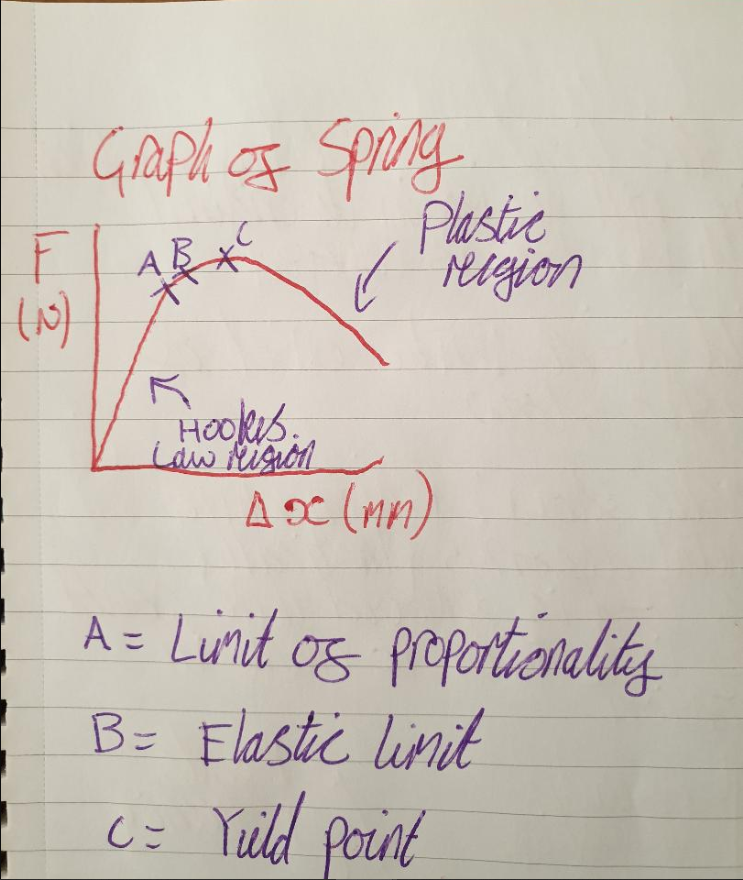 Graph of Spring
F
(N)
A
B
C
Plastic
region
Hookes
Law region
Δx (mm)
A = Limit of proportionality
B = Elastic limit
C = Yield point